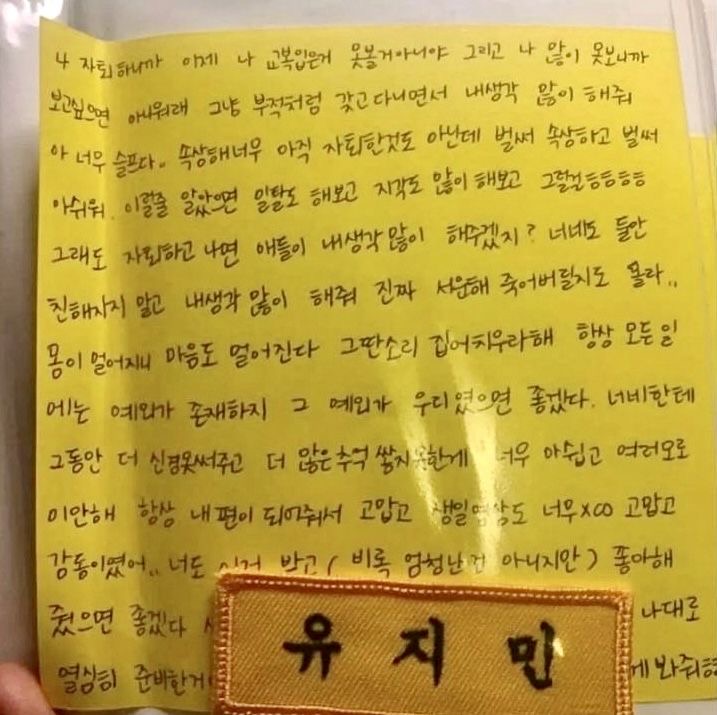 나 자퇴하니까 이제 나 교복입은거 못볼거아니야 그리고 나 많이 못보니까
보고싶으면 아쉬워해 그냥 부적처럼 갖고다니면서 내생각 많이 해줘
아 너무 슬프다. 속상해너무 아직 자퇴한것도 아닌데 벌써 속상하고 벌써
아쉬워. 이럴줄 알았으면 일탈도 해보고 지각도 많이 해보고 그럴걸ㅎㅎㅎㅎ
그래도 자퇴하고 나면 애들이 내생각 많이 해주겠지? 너네도 둘만
친해지지 말고 내생각 많이 해줘 진짜 서운해 죽어버릴지도 몰라..
몸이 멀어지니 마음도 멀어진다 그딴소리 집어치우라해 항상 모든일
에는 예외가 존재하지 그 예외가 우리였으면 좋겠다. 너네한테
그동안 더 신경못써주고 더 많은추억 쌓지못한게 너무 아쉽고 여러모로
미안해 항상 내편이 되어줘서 고맙고 생일영상도 너무x00 고맙고
감동이였어.. 너도 이거 받고 ( 비록 엄청난건 아니지만 ) 좋아해
줬으면 좋겠다 나대로
열심히 준비한거 게 봐줘ㅎ
유지민